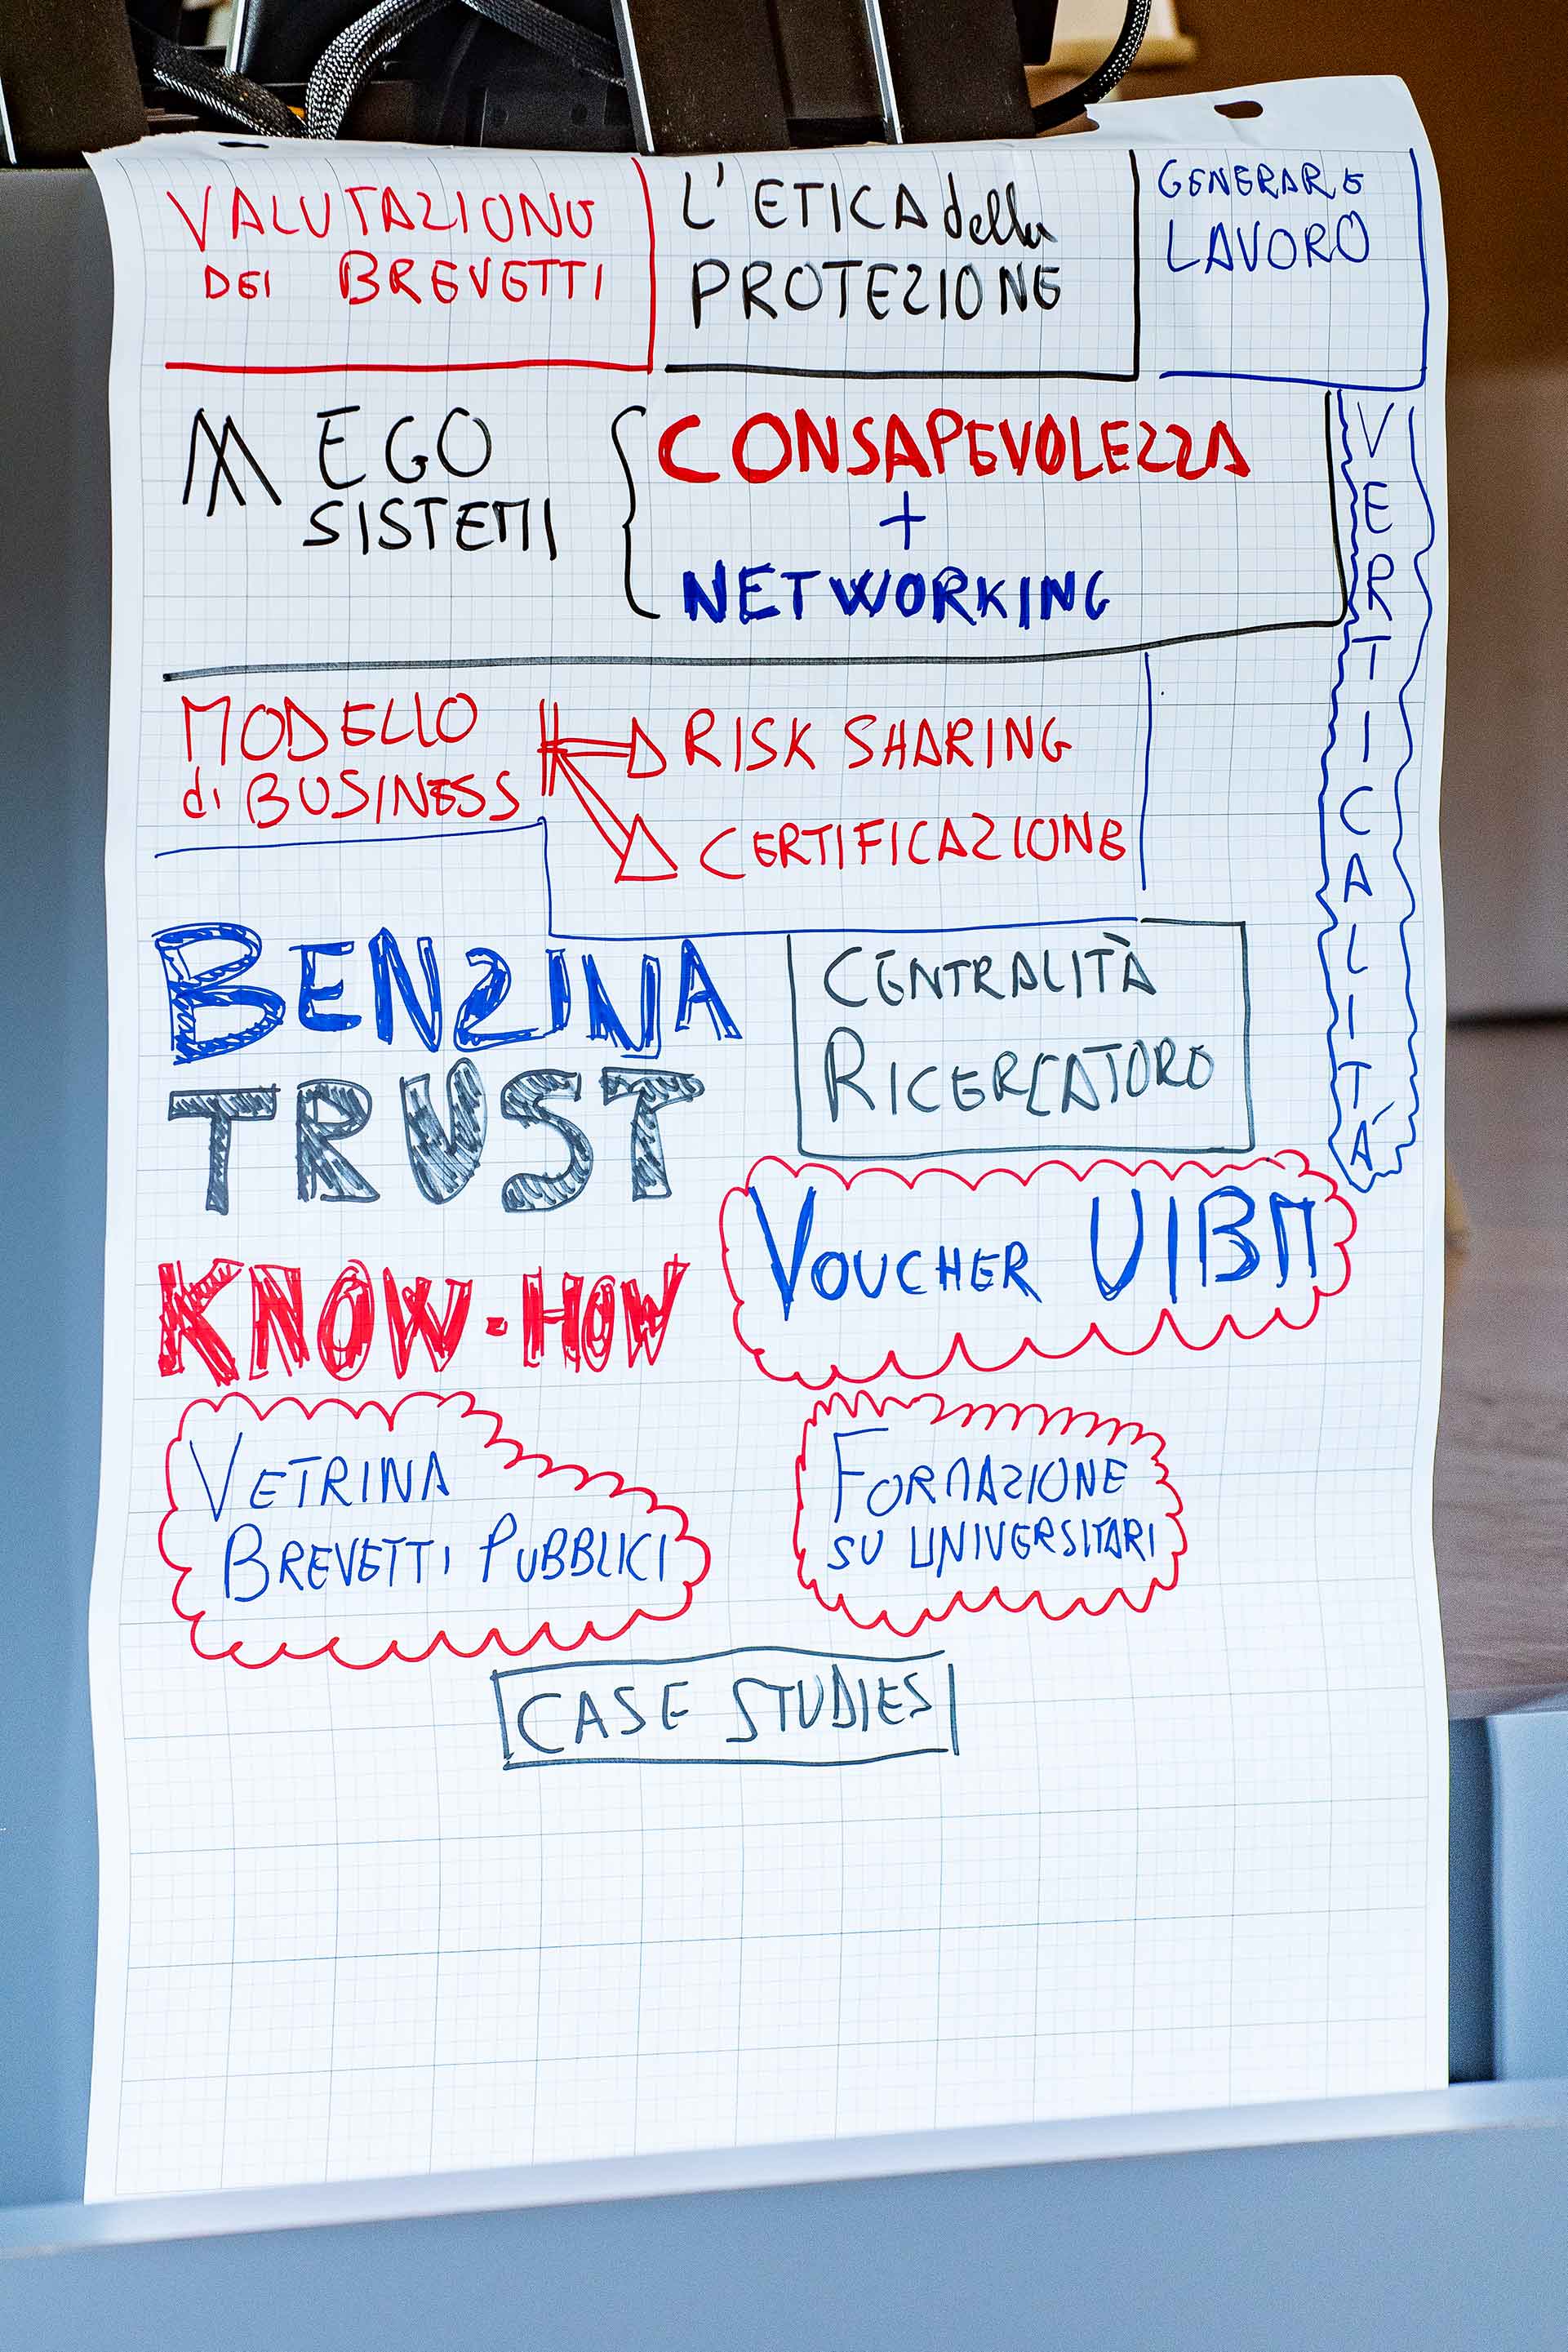 VALUTAZIONE
DEI BREVETTI
L'ETICA della
PROTEZIONE
GENERARE
LAVORO
EGO
SISTEMI
CONSAPEVOLEZZA
+
NETWORKING
VERTICALITÁ
MODELLO
di BUSINESS
RISK SHARING
CERTIFICAZIONE
BENZINA
TRUST
KNOW-HOW
CENTRALITÀ
RICERCATORE
VOUCHER UIBM
VETRINA
BREVETTI PUBBLICI
FORMAZIONE
SU UNIVERSITARI
CASE STUDIES